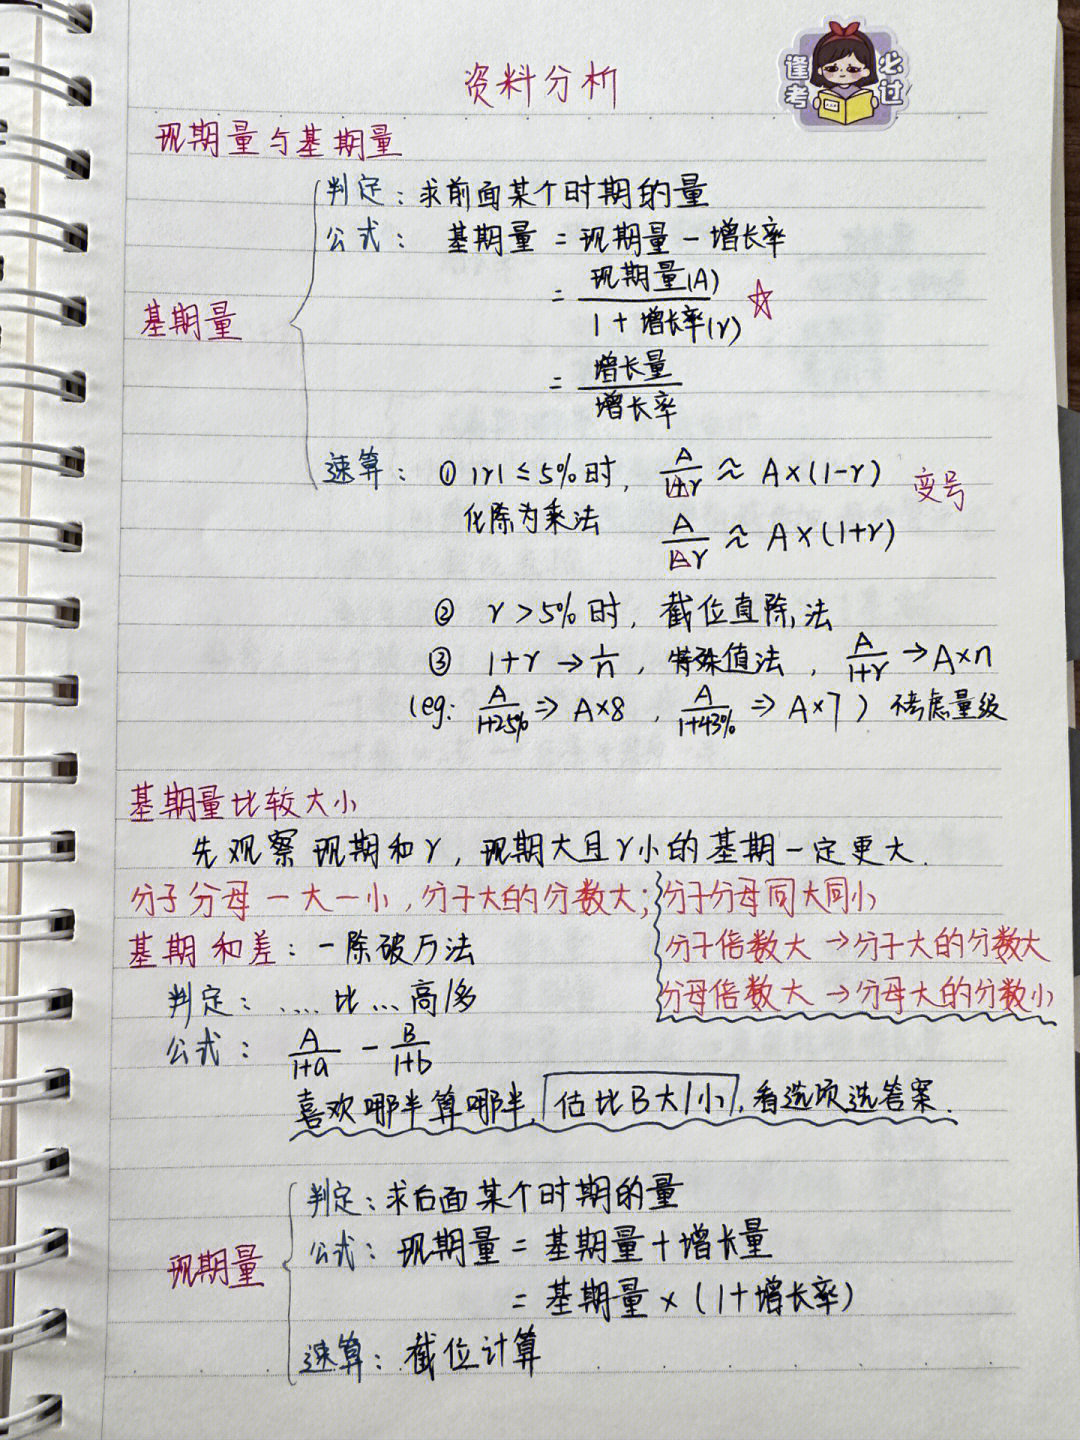 资料分析
逢考必过
现期量与基期量
基期量
判定：求前面某个时期的量
公式：基期量 = 现期量 - 增长率
= 现期量(A) / 1 + 增长率(r) ☆
= 增长量 / 增长率
速算：① |r| ≤ 5%时，A/(1+r) ≈ A×(1-r) 变号
化除为乘法 A/(1-r) ≈ A×(1+r)
② r > 5%时，截位直除法
③ 1+r → 1/n，特殊值法，A/(1+r) → A×n
(eg: A/(1+25%) => A×8，A/(1+43%) => A×7) 不考虑量级
基期量比较大小
先观察现期和r，现期大且r小的基期一定更大.
分子分母一大一小，分子大的分数大；
分子分母同大同小
分子倍数大 → 分子大的分数大
分母倍数大 → 分母大的分数小
基期和差：一除破万法
判定：.... 比 ... 高/多
公式：A/(1+a) - B/(1+b)
喜欢哪半算哪半，估比B大/小，看选项选答案.
现期量
判定：求后面某个时期的量
公式：现期量 = 基期量 + 增长量
= 基期量 × (1+增长率)
速算：截位计算